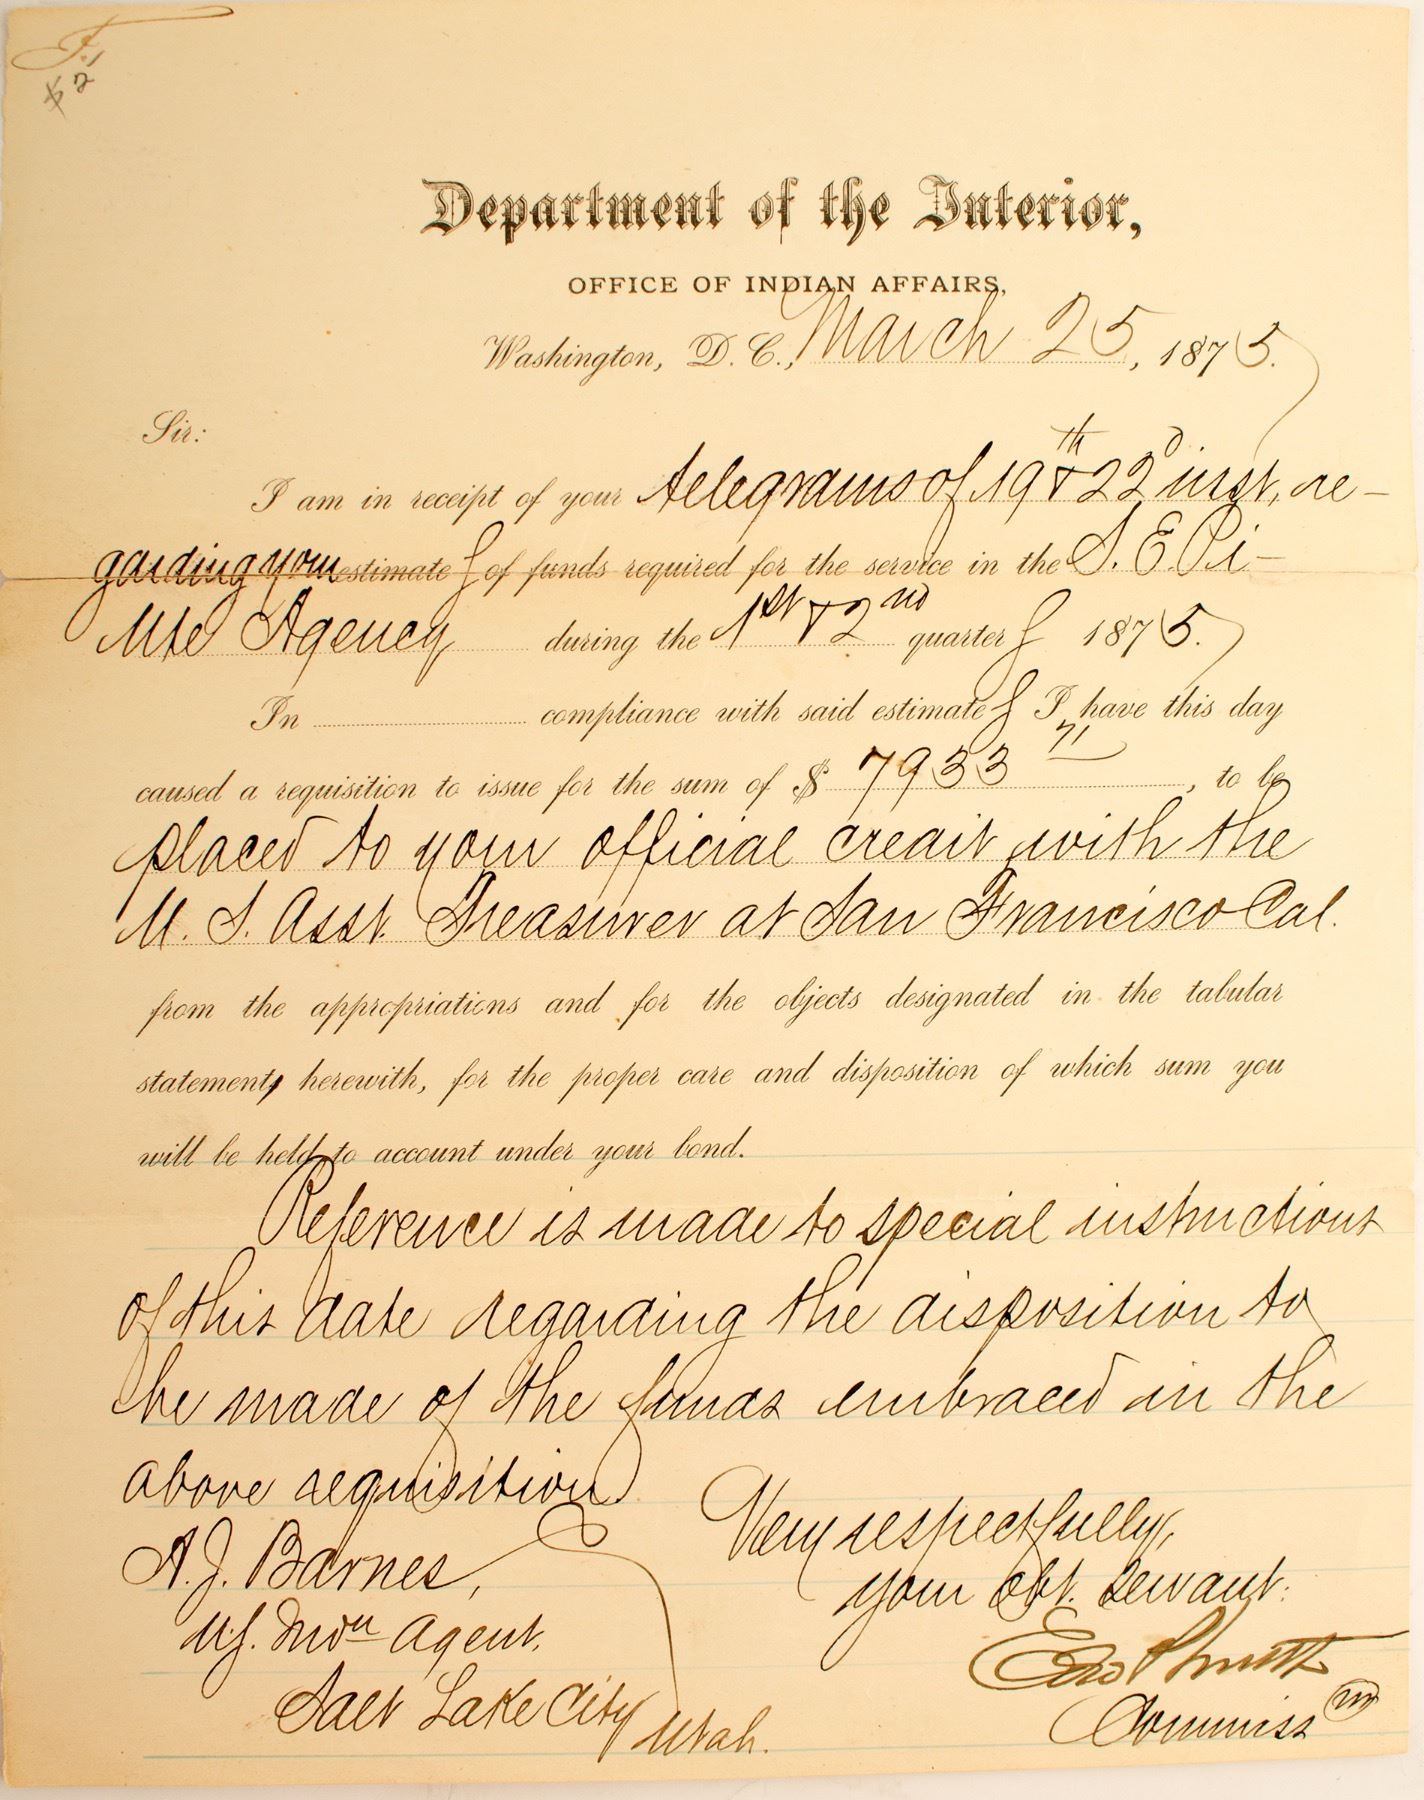 F.
$2
Department of the Interior,
OFFICE OF INDIAN AFFAIRS,
Washington, D.C., March 25, 1875.
Sir:
I am in receipt of your telegrams of 19th & 22d inst, re-
garding your estimates of funds required for the service in the S. E. Pi-
Ute Agency during the 1st & 2nd quarters 1875.
In compliance with said estimates I have this day
caused a requisition to issue for the sum of $ 7933 71, to be
placed to your official credit with the
U. S. Asst. Treasurer at San Francisco Cal.
from the appropriations and for the objects designated in the tabular
statement, herewith, for the proper care and disposition of which sum you
will be held to account under your bond.
Reference is made to special instructions
of this date regarding the disposition to
be made of the funds embraced in the
above requisition
Very respectfully,
your obt. servant.
Edw P Smith
Commiss
A. J. Barnes,
US. Indn Agent.
Salt Lake City Utah.